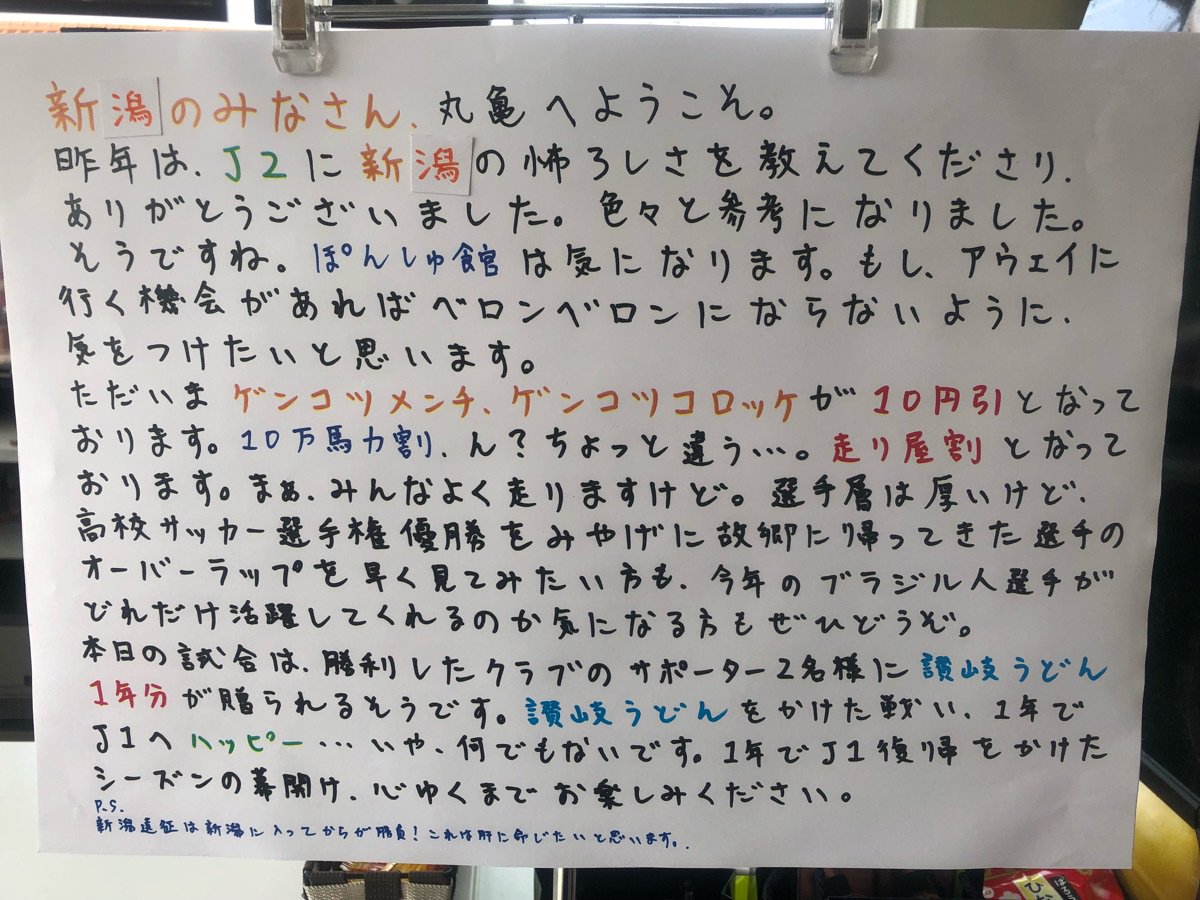 新潟のみなさん、丸亀へようこそ。
昨年は、J2に新潟の怖ろしさを教えてくださり、
ありがとうございました。色々と参考になりました。
そうですね。ぽんしゅ館は気になります。もし、アウェイに
行く機会があればベロンベロンにならないように、
気をつけたいと思います。
ただいまゲンコツメンチ、ゲンコツコロッケが10円引となって
おります。10万馬力割、ん?ちょっと違う…。走り屋割となって
おります。まぁ、みんなよく走りますけど。選手層は厚いけど、
高校サッカー選手権優勝をみやげに故郷に帰ってきた選手の
オーバーラップを早く見てみたい方も、今年のブラジル人選手が
どれだけ活躍してくれるのか気になる方もぜひどうぞ。
本日の試合は、勝利したクラブのサポーター2名様に讃岐うどん
1年分が贈られるそうです。讃岐うどんをかけた戦い、1年で
J1へハッピー…いや、何でもないです。1年でJ1復帰をかけた
シーズンの幕開け、心ゆくまでお楽しみください。
P.S.
新潟遠征は新潟に入ってからが勝負!これは肝に命じたいと思います。